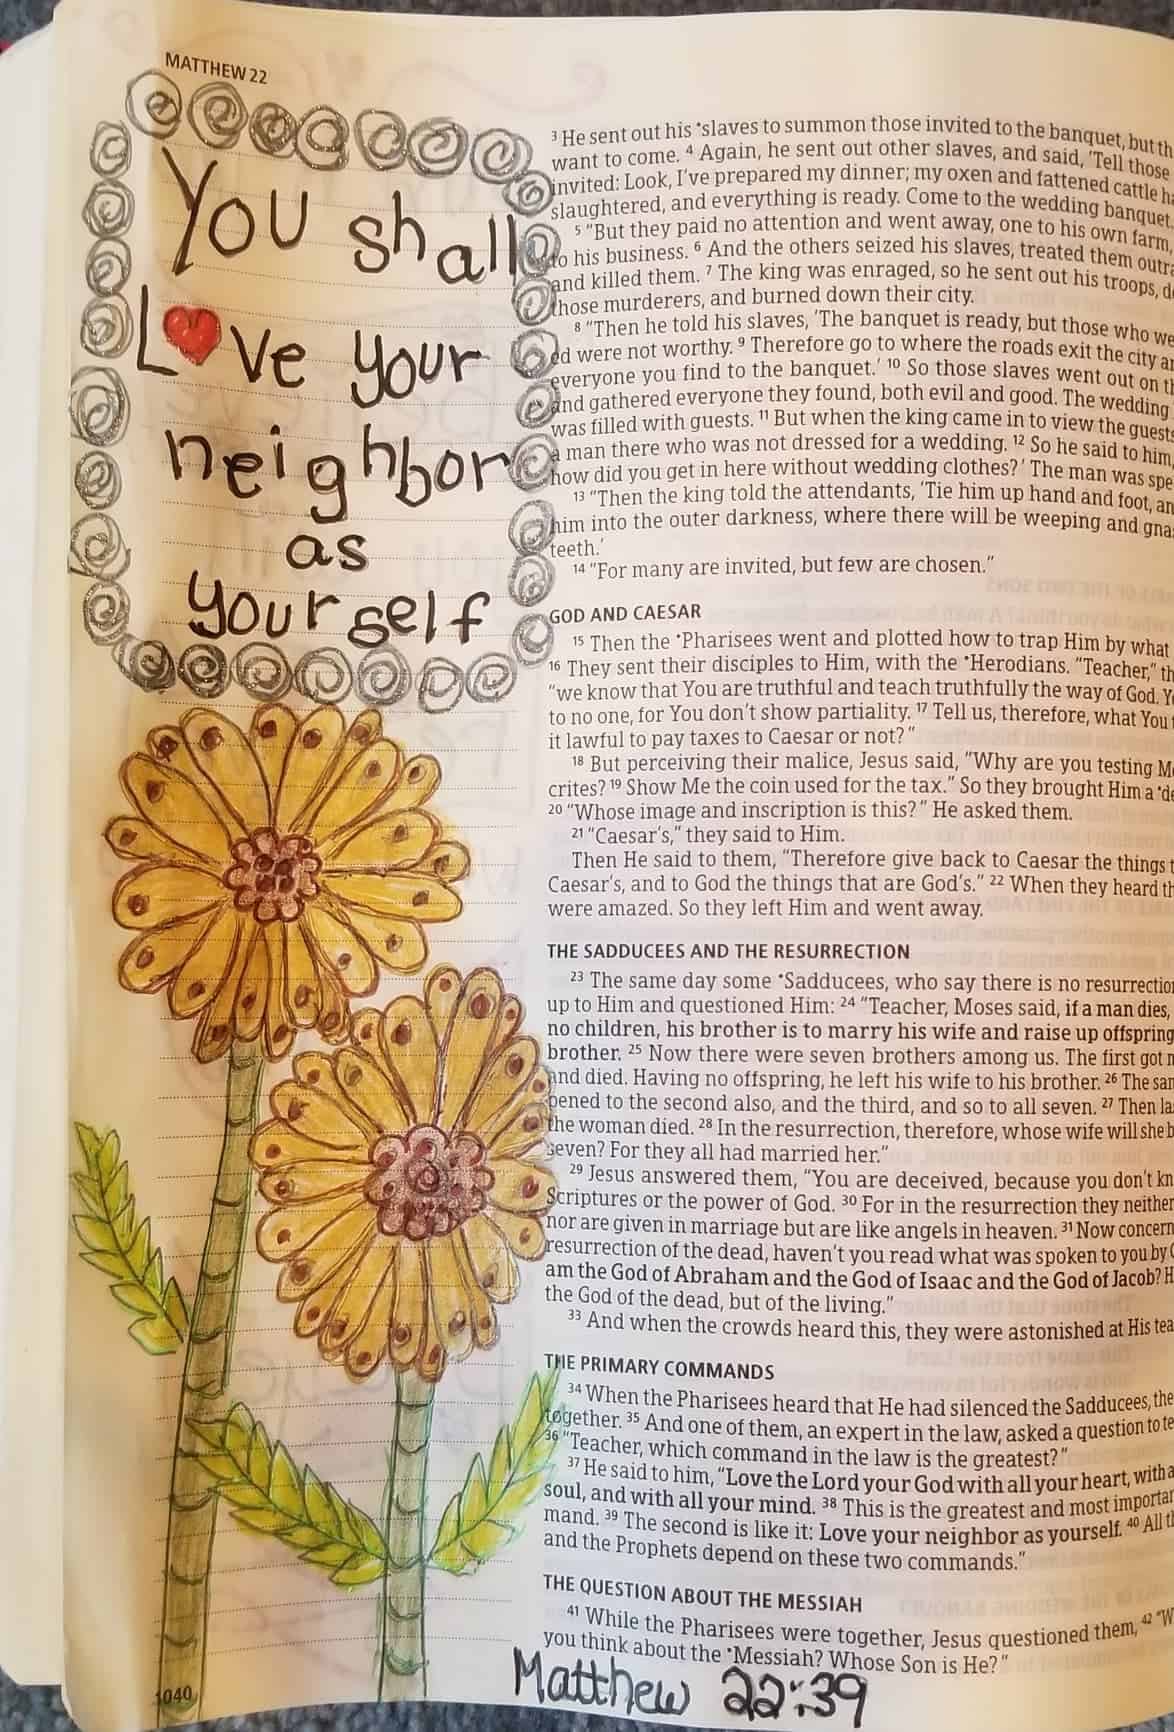 MATTHEW 22
You shall
Love your
neighbor
as
yourself
3 He sent out his •slaves to summon those invited to the banquet, but th
want to come. 4 Again, he sent out other slaves, and said, 'Tell those
invited: Look, I've prepared my dinner; my oxen and fattened cattle ha
slaughtered, and everything is ready. Come to the wedding banquet.
5 "But they paid no attention and went away, one to his own farm,
to his business. 6 And the others seized his slaves, treated them outra
and killed them. 7 The king was enraged, so he sent out his troops, de
those murderers, and burned down their city.
8 "Then he told his slaves, 'The banquet is ready, but those who we
ed were not worthy. 9 Therefore go to where the roads exit the city an
everyone you find to the banquet.' 10 So those slaves went out on th
and gathered everyone they found, both evil and good. The wedding
was filled with guests. 11 But when the king came in to view the guests
a man there who was not dressed for a wedding. 12 So he said to him,
how did you get in here without wedding clothes?' The man was spe
13 "Then the king told the attendants, 'Tie him up hand and foot, an
him into the outer darkness, where there will be weeping and gna
teeth.'
14 "For many are invited, but few are chosen."
GOD AND CAESAR
15 Then the •Pharisees went and plotted how to trap Him by what
16 They sent their disciples to Him, with the •Herodians. "Teacher," th
"we know that You are truthful and teach truthfully the way of God. Y
to no one, for You don't show partiality. 17 Tell us, therefore, what You
it lawful to pay taxes to Caesar or not?"
18 But perceiving their malice, Jesus said, "Why are you testing Me
crites? 19 Show Me the coin used for the tax." So they brought Him a •de
20 "Whose image and inscription is this?" He asked them.
21 "Caesar's," they said to Him.
Then He said to them, "Therefore give back to Caesar the things t
Caesar's, and to God the things that are God's." 22 When they heard th
were amazed. So they left Him and went away.
THE SADDUCEES AND THE RESURRECTION
23 The same day some •Sadducees, who say there is no resurrection
up to Him and questioned Him: 24 "Teacher, Moses said, if a man dies,
no children, his brother is to marry his wife and raise up offspring
brother. 25 Now there were seven brothers among us. The first got m
and died. Having no offspring, he left his wife to his brother. 26 The sam
pened to the second also, and the third, and so to all seven. 27 Then la
the woman died. 28 In the resurrection, therefore, whose wife will she b
seven? For they all had married her."
29 Jesus answered them, "You are deceived, because you don't kn
Scriptures or the power of God. 30 For in the resurrection they neither
nor are given in marriage but are like angels in heaven. 31 Now concern
resurrection of the dead, haven't you read what was spoken to you by G
am the God of Abraham and the God of Isaac and the God of Jacob? H
the God of the dead, but of the living."
33 And when the crowds heard this, they were astonished at His tea
THE PRIMARY COMMANDS
34 When the Pharisees heard that He had silenced the Sadducees, the
together. 35 And one of them, an expert in the law, asked a question to te
36 "Teacher, which command in the law is the greatest?"
37 He said to him, "Love the Lord your God with all your heart, with a
soul, and with all your mind. 38 This is the greatest and most importan
mand. 39 The second is like it: Love your neighbor as yourself. 40 All th
and the Prophets depend on these two commands."
THE QUESTION ABOUT THE MESSIAH
41 While the Pharisees were together, Jesus questioned them, 42 "W
you think about the •Messiah? Whose Son is He?"
Matthew 22:39
1040